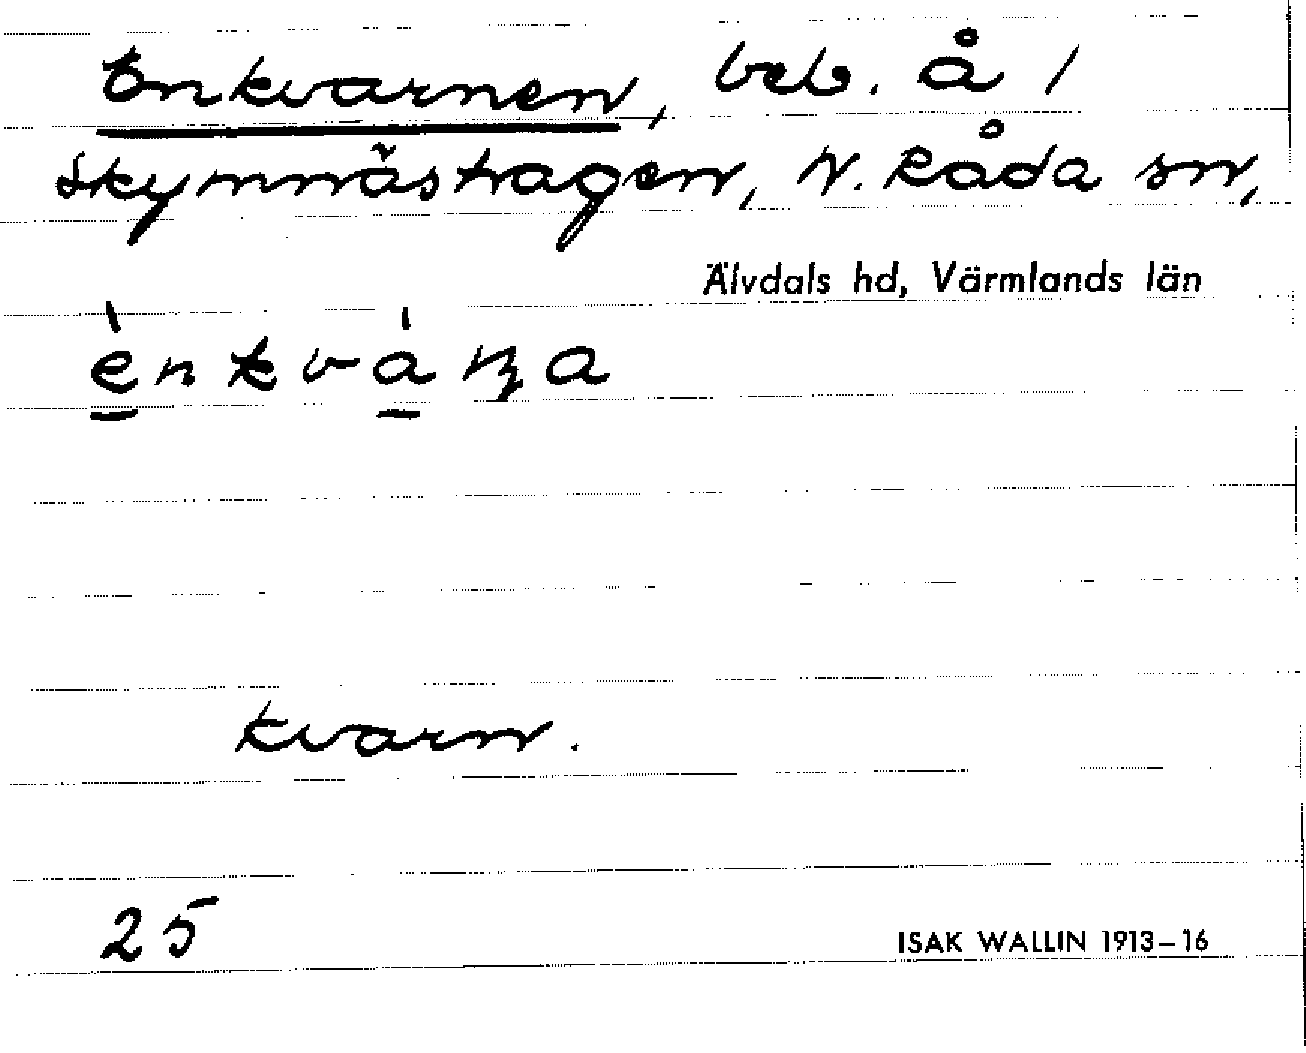 Enkvarnen, beb. å /
Skymnäshagen, N. Råda sn,
Älvdals hd, Värmlands län
ènkváṇa
kvarn.
25
ISAK WALLIN 1913–16